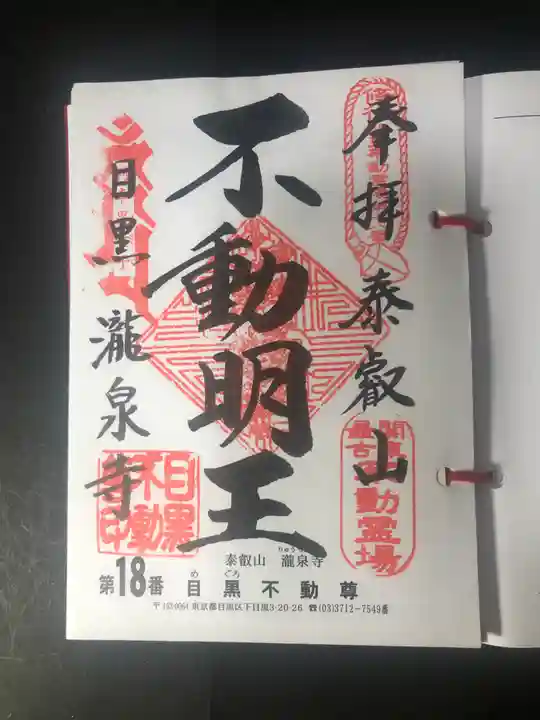 奉拝 泰叡山
不動明王
目黒 瀧泉寺
関東最古不動霊場
目黒不動
泰叡山 瀧泉寺
第18番 目黒不動尊
め ぐろ
東京都目黒区下目黒3-20-26 ☎(03)3712-7549番